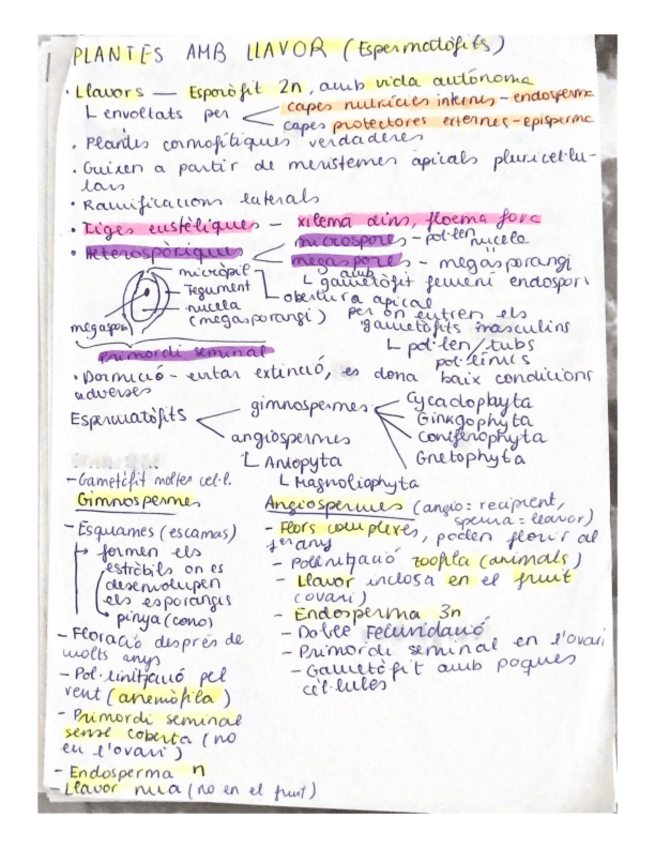 PLANTES AMB LLAVOR (Espermatòfits)
· Llavors — Esporòfit 2n, amb vida autònoma
L envoltats per
capes nutrícies internes - endosperma
capes protectores externes - episperma
· Plantes cormofítiques verdaderes
· Creixen a partir de meristemes apicals pluricel·lu-
lars
· Ramificacions laterals
· Tiges eustèliques - xilema dins, floema fora
· Heterospòriques
microspores - pol·len
nucela
megaspores - megasporangi
L amb gametòfit femení endospori
micròpil
Tegument
nucela
(megasporangi)
megaspora
L obertura apical
per on entren els
gametòfits masculins
L pol·len/tubs
pol·línics
primordi seminal
· Dormició - evitar extinció, es dona baix condicions
adverses
Espermatòfits
gimnospermes
Cycadophyta
Ginkgophyta
Coniferophyta
Gnetophyta
angiospermes
L Antopyta
L Magnoliophyta
- Gametòfit moltes cèl·l.
Gimnospermes
- Esquames (escamas)
formen els
estròbils on es
desenvolupen
els esporangis
pinya (cono)
- Floració després de
molts anys
- Pol·linització pel
vent (anemòfila)
- Primordi seminal
sense coberta (no
en l'ovari)
- Endosperma n
- Llavor nua (no en el fruit)
Angiospermes (angio = recipient,
sperma = llavor)
- Flors complexes, poden florir al
1er any
- Pol·linització zoòfila (animals)
- Llavor inclosa en el fruit
(ovari)
- Endosperma 3n
- Doble Fecundació
- Primordi seminal en l'ovari
- Gametòfit amb poques
cèl·lules